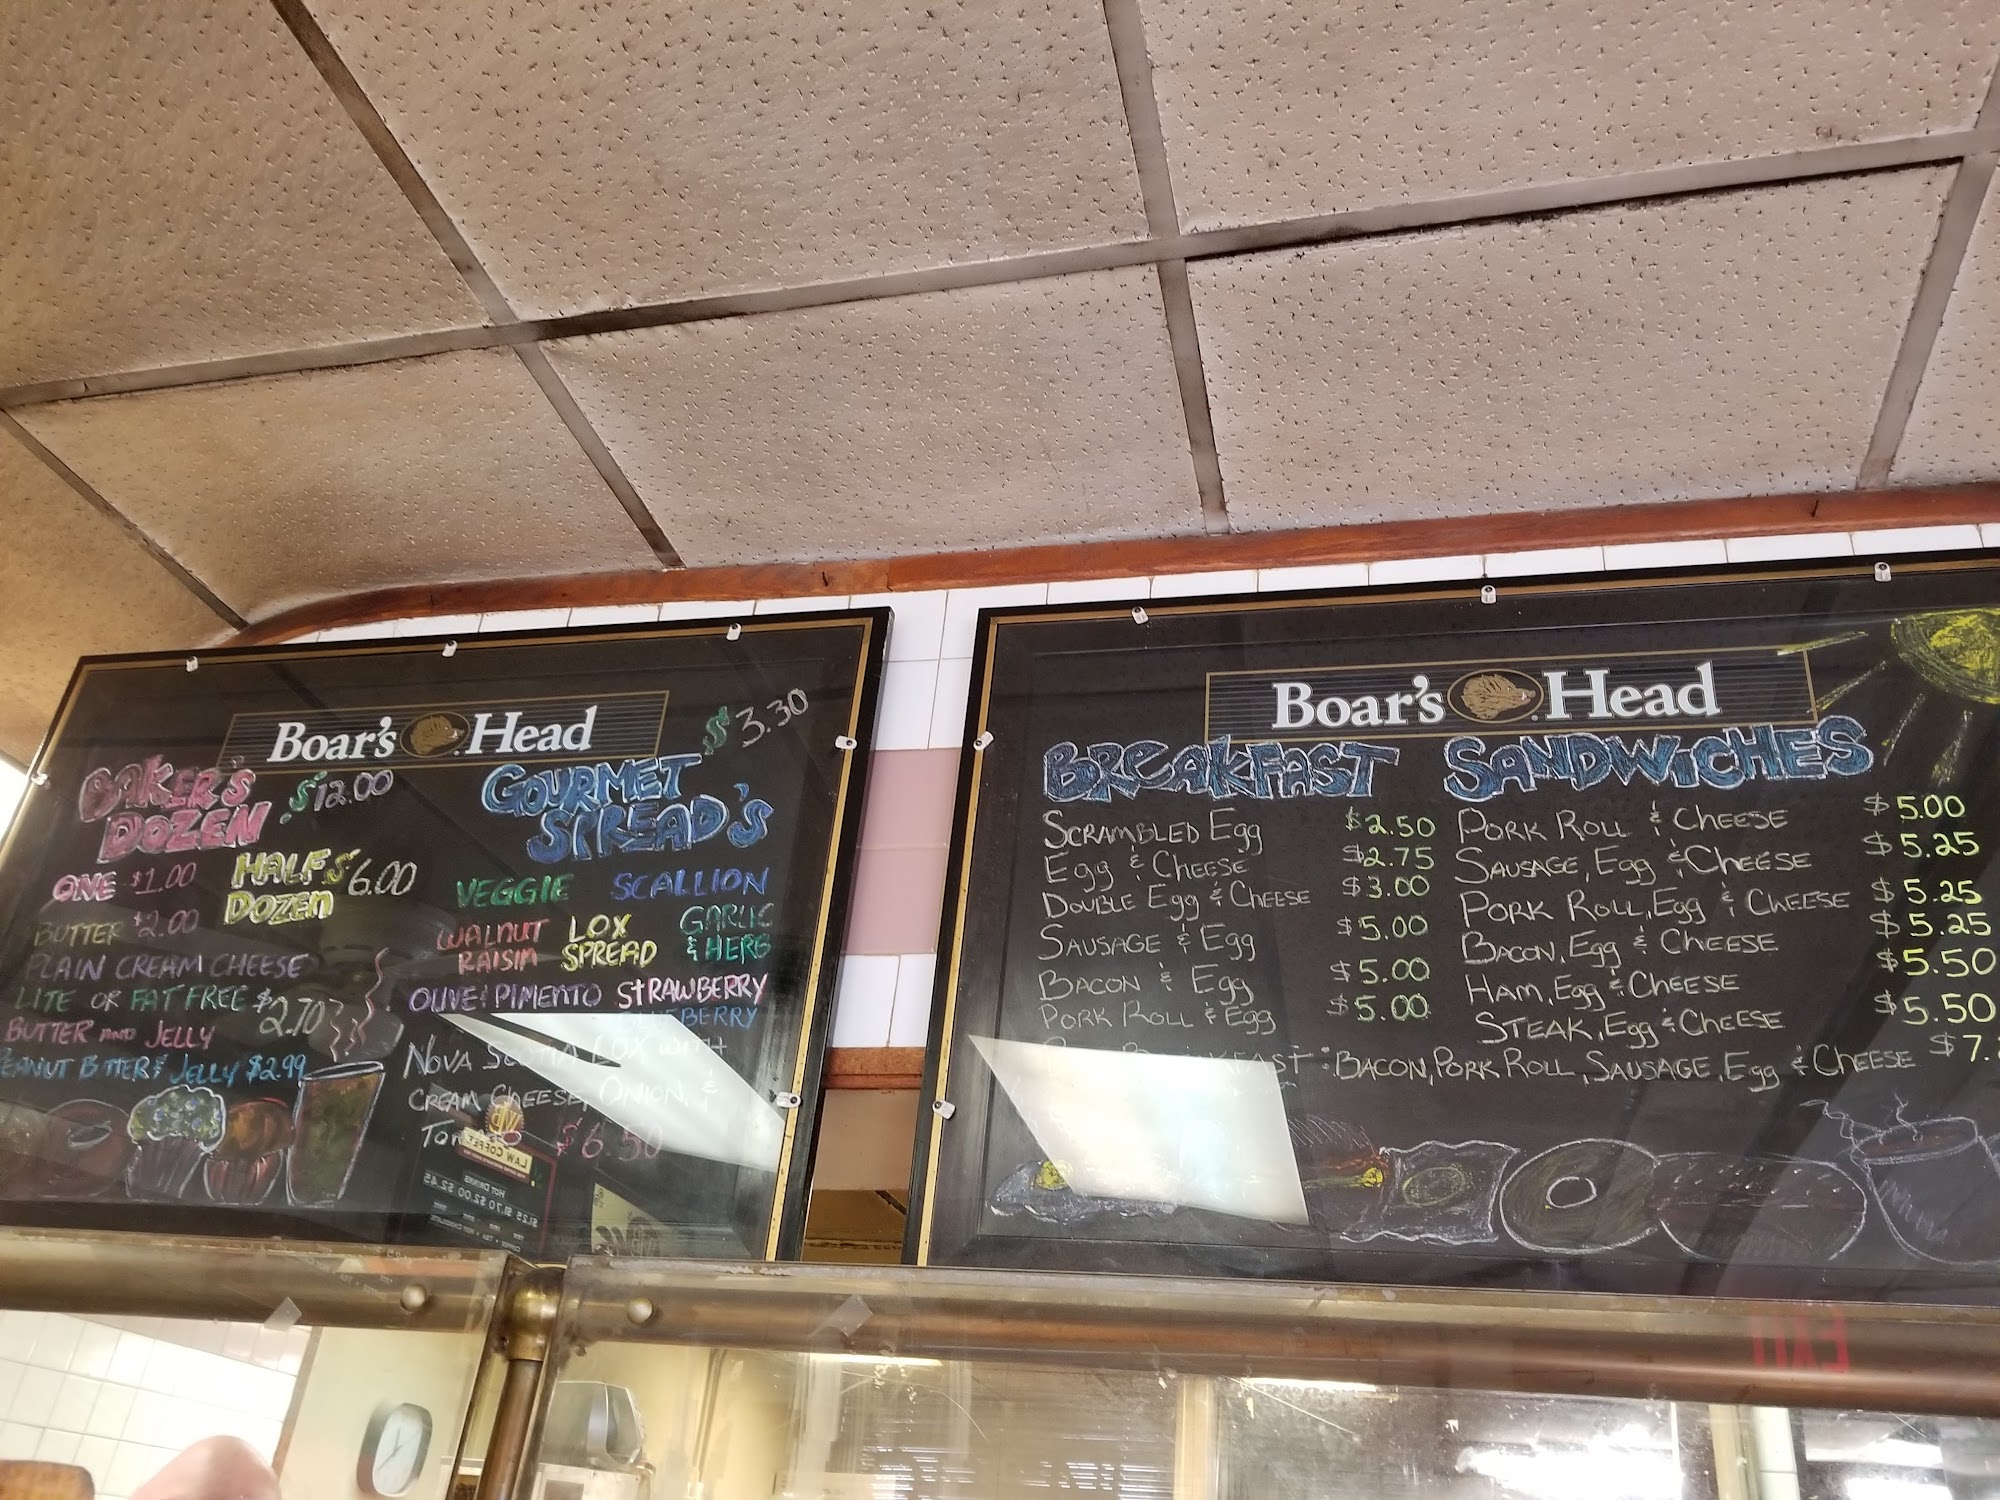 Boar's Head
$3.30
BAKER'S
DOZEN
$12.00
GOURMET
SPREAD'S
ONE $1.00
HALF
DOZEN
$6.00
BUTTER $2.00
PLAIN CREAM CHEESE
LITE OR FAT FREE $2.70
BUTTER AND JELLY
PEANUT BTTER & JELLY $2.99
VEGGIE SCALLION
WALNUT
RAISIN
LOX
SPREAD
GARLIC
& HERB
OLIVE & PIMENTO STRAWBERRY
NOVA SCOTIA LOX WITH
CREAM CHEESE, ONION, &
TOMATO $6.50
Boar's Head
BREAKFAST SANDWICHES
SCRAMBLED Egg $2.50
Egg & CHEESE $2.75
DOUBLE Egg & CHEESE $3.00
SAUSAGE & Egg $5.00
BACON & Egg $5.00
PORK ROLL & Egg $5.00
PORK ROLL & CHEESE $5.00
SAUSAGE, Egg & CHEESE $5.25
PORK ROLL, Egg & CHEESE $5.25
BACON, Egg & CHEESE $5.25
HAM, Egg & CHEESE $5.50
STEAK, Egg & CHEESE $5.50
: BACON, PORK ROLL, SAUSAGE, Egg & CHEESE $7.
EXIT